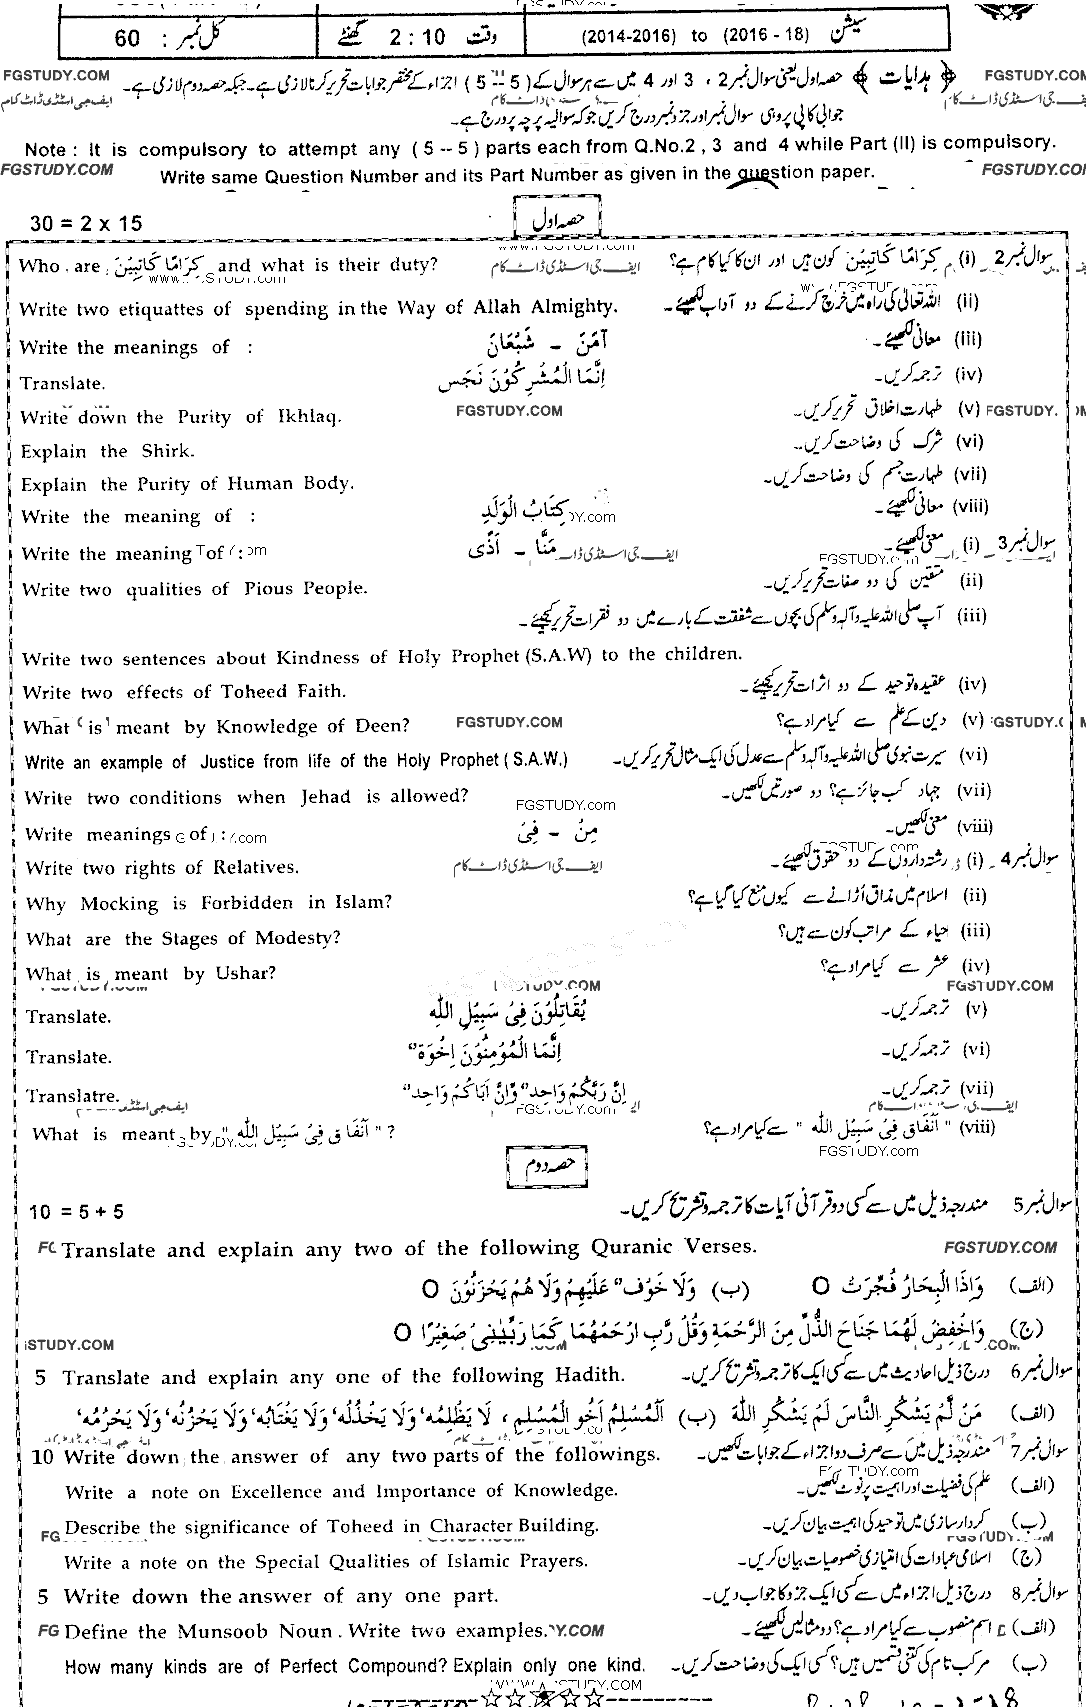 سیشن (2014-2016) to (2016 - 18) وقت 2 : 10 گھنٹے کل نمبر : 60
FGSTUDY.COM ﴿ ہدایات ﴾ حصہ اول یعنی سوال نمبر 2 ، 3 اور 4 میں سے ہر سوال کے ( 5 -- 5 ) اجزاء کے مختصر جوابات تحریر کرنا لازمی ہے۔ جبکہ حصہ دوم لازمی ہے۔ FGSTUDY.COM
ایف جی اسٹڈی ڈاٹ کام
جوابی کاپی پر وہی سوال نمبر اور جزو نمبر درج کریں جو کہ سوالیہ پرچہ پر درج ہے۔
Note : It is compulsory to attempt any ( 5 -- 5 ) parts each from Q.No.2 , 3 and 4 while Part (II) is compulsory.
FGSTUDY.COM Write same Question Number and its Part Number as given in the question paper. FGSTUDY.CO
30 = 2 x 15 حصہ اول
www.FGSTUDY.com
Who are کِرَامًا کَاتِبِیْنَ and what is their duty? ایف جی اسٹڈی ڈاٹ کام سوال نمبر 2 _ (i) کِرَامًا کَاتِبِیْنَ کون ہیں اور ان کا کیا کام ہے؟
Write two etiquattes of spending in the Way of Allah Almighty. (ii) اللہ تعالیٰ کی راہ میں خرچ کرنے کے دو آداب لکھیئے۔
Write the meanings of : آمَنَ ـ شَبْعَانَ (iii) معانی لکھیئے۔
Translate. اِنَّمَا الْمُشْرِکُوْنَ نَجَس (iv) ترجمہ کریں۔
Write down the Purity of Ikhlaq. FGSTUDY.COM (v) طہارت اخلاق تحریر کریں۔ FGSTUDY.
Explain the Shirk. (vi) شرک کی وضاحت کریں۔
Explain the Purity of Human Body. (vii) طہارت جسم کی وضاحت کریں۔
Write the meaning of : کِتَابُ الْوَلَدِ (viii) معانی لکھیئے۔
Write the meaning of : مَنًّا ـ اَذًی سوال نمبر 3 _ (i) معنی لکھیئے۔
Write two qualities of Pious People. (ii) متقین کی دو صفات تحریر کریں۔
(iii) آپ صلی اللہ علیہ وآلہ وسلم کی بچوں سے شفقت کے بارے میں دو فقرات تحریر کیجیئے۔
Write two sentences about Kindness of Holy Prophet (S.A.W) to the children.
Write two effects of Toheed Faith. (iv) عقیدہ توحید کے دو اثرات تحریر کیجیئے۔
What is meant by Knowledge of Deen? FGSTUDY.COM (v) دین کے علم سے کیا مراد ہے؟
Write an example of Justice from life of the Holy Prophet ( S.A.W.) (vi) سیرت نبوی صلی اللہ علیہ وآلہ وسلم سے عدل کی ایک مثال تحریر کریں۔
Write two conditions when Jehad is allowed? FGSTUDY.com (vii) جہاد کب جائز ہے؟ دو صورتیں لکھیں۔
Write meanings of : مِنْ ـ فِیْ (viii) معنی لکھیں۔
Write two rights of Relatives. ایف جی اسٹڈی ڈاٹ کام سوال نمبر 4 ـ (i) رشتہ داروں کے دو حقوق لکھیئے۔
Why Mocking is Forbidden in Islam? (ii) اسلام میں مذاق اُڑانے سے کیوں منع کیا گیا ہے؟
What are the Stages of Modesty? (iii) حیاء کے مراتب کون سے ہیں؟
What is meant by Ushar? (iv) عشر سے کیا مراد ہے؟
FGSTUDY.COM
Translate. یُقَاتِلُوْنَ فِیْ سَبِیْلِ اللّٰہِ (v) ترجمہ کریں۔
Translate. اِنَّمَا الْمُؤْمِنُوْنَ اِخْوَة'' (vi) ترجمہ کریں۔
Translatre. اِنَّ رَبَّکُمْ وَاحِد'' وَّاِنَّ اَبَاکُمْ وَاحِد'' (vii) ترجمہ کریں۔
What is meant by " اَنْفَاق فِیْ سَبِیْلِ اللّٰہ " ? (viii) " اَنْفَاق فِیْ سَبِیْلِ اللّٰہ " سے کیا مراد ہے؟
FGSTUDY.com
حصہ دوم
10 = 5 + 5 سوال نمبر 5 مندرجہ ذیل میں سے کسی دو قرآنی آیات کا ترجمہ و تشریح کریں۔
Translate and explain any two of the following Quranic Verses. FGSTUDY.COM
(الف) وَاِذَا الْبِحَارُ فُجِّرَتْ O (ب) وَلَا خَوْف'' عَلَیْهِمْ وَلَا هُمْ یَحْزَنُوْنَ O
(ج) وَاخْفِضْ لَهُمَا جَنَاحَ الذُّلِّ مِنَ الرَّحْمَةِ وَقُلْ رَّبِّ ارْحَمْهُمَا کَمَا رَبَّیٰنِیْ صَغِیْرًا O
5 Translate and explain any one of the following Hadith. سوال نمبر 6 درج ذیل احادیث میں سے کسی ایک کا ترجمہ و تشریح کریں۔
(الف) مَنْ لَّمْ یَشْکُرِ النَّاسَ لَمْ یَشْکُرِ اللّٰہَ (ب) اَلْمُسْلِمُ اَخُو الْمُسْلِمِ ، لَا یَظْلِمُه' وَلَا یَخْذُلُه' وَلَا یَغْتَابُه' وَلَا یَحْزُنُه' وَلَا یَحْرُمُه'
10 Write down the answer of any two parts of the followings. سوال نمبر 7 مندرجہ ذیل میں سے صرف دو اجزاء کے جوابات لکھیں۔
Write a note on Excellence and Importance of Knowledge. (الف) علم کی فضیلت اور اہمیت پر نوٹ لکھیں۔
Describe the significance of Toheed in Character Building. (ب) کردار سازی میں توحید کی اہمیت بیان کریں۔
Write a note on the Special Qualities of Islamic Prayers. (ج) اسلامی عبادات کی امتیازی خصوصیات بیان کریں۔
5 Write down the answer of any one part. سوال نمبر 8 درج ذیل اجزاء میں سے کسی ایک جزو کا جواب دیں۔
Define the Munsoob Noun. Write two examples. (الف) اسم منصوب سے کیا مراد ہے؟ دو مثالیں لکھیئے۔
How many kinds are of Perfect Compound? Explain only one kind. (ب) مرکب تام کی کتنی قسمیں ہیں؟ کسی ایک کی وضاحت کریں۔